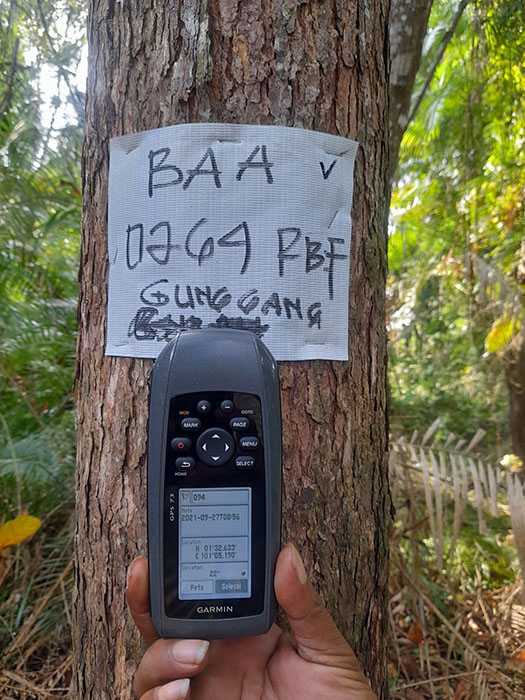 BAA ✓
0264 RBF
GUNGGANG
MOB
GOTO
MARK
PAGE
MENU
SELECT
HOME
GPS 73
094
Note
2021-09-27T00:56
Location
N 01°32.633'
E 101°05.190'
Elevation
22m
Peta
Selesai
GARMIN